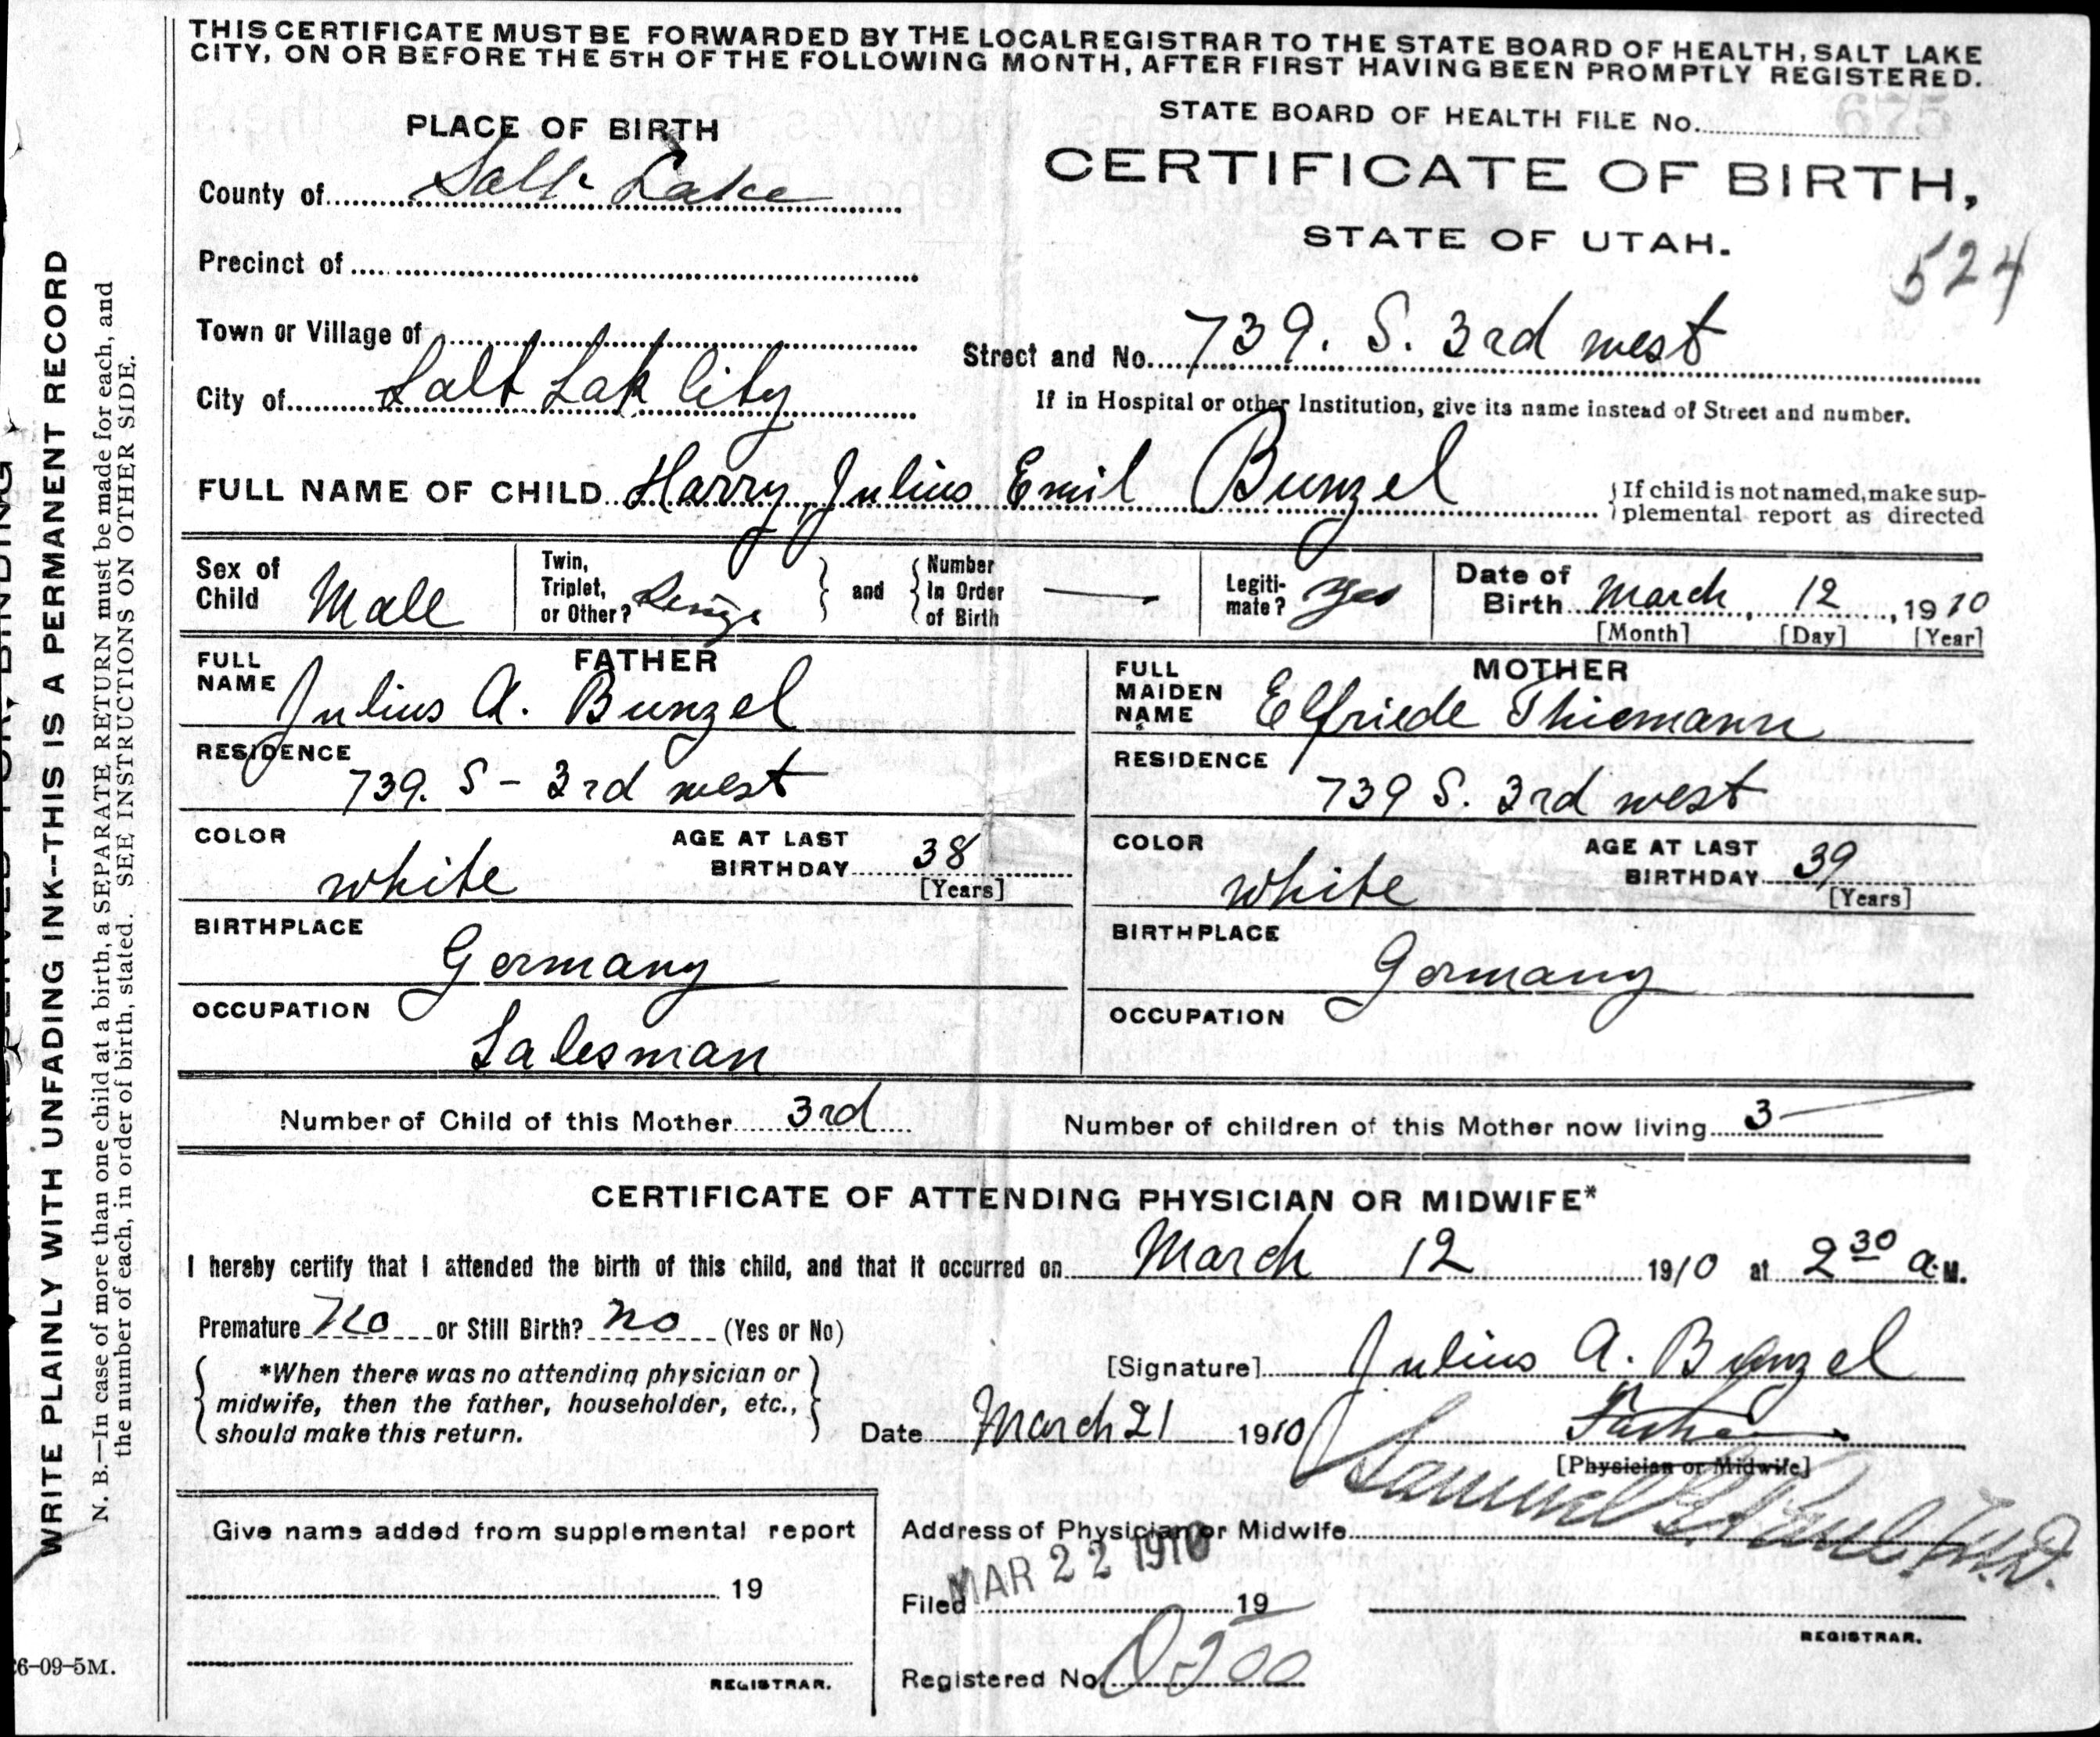 THIS CERTIFICATE MUST BE FORWARDED BY THE LOCAL REGISTRAR TO THE STATE BOARD OF HEALTH, SALT LAKE
CITY, ON OR BEFORE THE 5TH OF THE FOLLOWING MONTH, AFTER FIRST HAVING BEEN PROMPTLY REGISTERED.
STATE BOARD OF HEALTH FILE No.
PLACE OF BIRTH
CERTIFICATE OF BIRTH,
STATE OF UTAH.
524
County of Salt Lake
Precinct of
Town or Village of
Street and No. 739. S. 3rd west
City of Salt Lak City
If in Hospital or other Institution, give its name instead of Street and number.
FULL NAME OF CHILD Harry Julius Emil Bunzel
{If child is not named, make sup-
plemental report as directed
Sex of Child Male
Twin, Triplet, or Other?
and
Number In Order of Birth —
Legiti-mate? Yes
Date of Birth March, 12, 1910
[Month] [Day] [Year]
FATHER
FULL NAME Julius A. Bunzel
RESIDENCE 739. S - 3rd west
COLOR white
AGE AT LAST BIRTHDAY 38
[Years]
BIRTHPLACE Germany
OCCUPATION Salesman
MOTHER
FULL MAIDEN NAME Elfriede Thiemann
RESIDENCE 739 S. 3rd west
COLOR white
AGE AT LAST BIRTHDAY 39
[Years]
BIRTHPLACE Germany
OCCUPATION
Number of Child of this Mother 3rd
Number of children of this Mother now living 3
CERTIFICATE OF ATTENDING PHYSICIAN OR MIDWIFE*
I hereby certify that I attended the birth of this child, and that it occurred on March 12 1910 at 2 30 a. M.
Premature No or Still Birth? no (Yes or No)
*When there was no attending physician or
midwife, then the father, householder, etc.,
should make this return.
[Signature] Julius A. Bunzel
Date March 21 1910
Father
[Physician or Midwife]
Give name added from supplemental report
19
REGISTRAR.
Address of Physician or Midwife
MAR 22 1910
Filed 19
Samuel G. Paul M.D.
REGISTRAR.
Registered No. 0500
WRITE PLAINLY WITH UNFADING INK--THIS IS A PERMANENT RECORD
N. B.—In case of more than one child at a birth, a SEPARATE RETURN must be made for each, and
the number of each, in order of birth, stated. SEE INSTRUCTIONS ON OTHER SIDE.
6-09-5M.